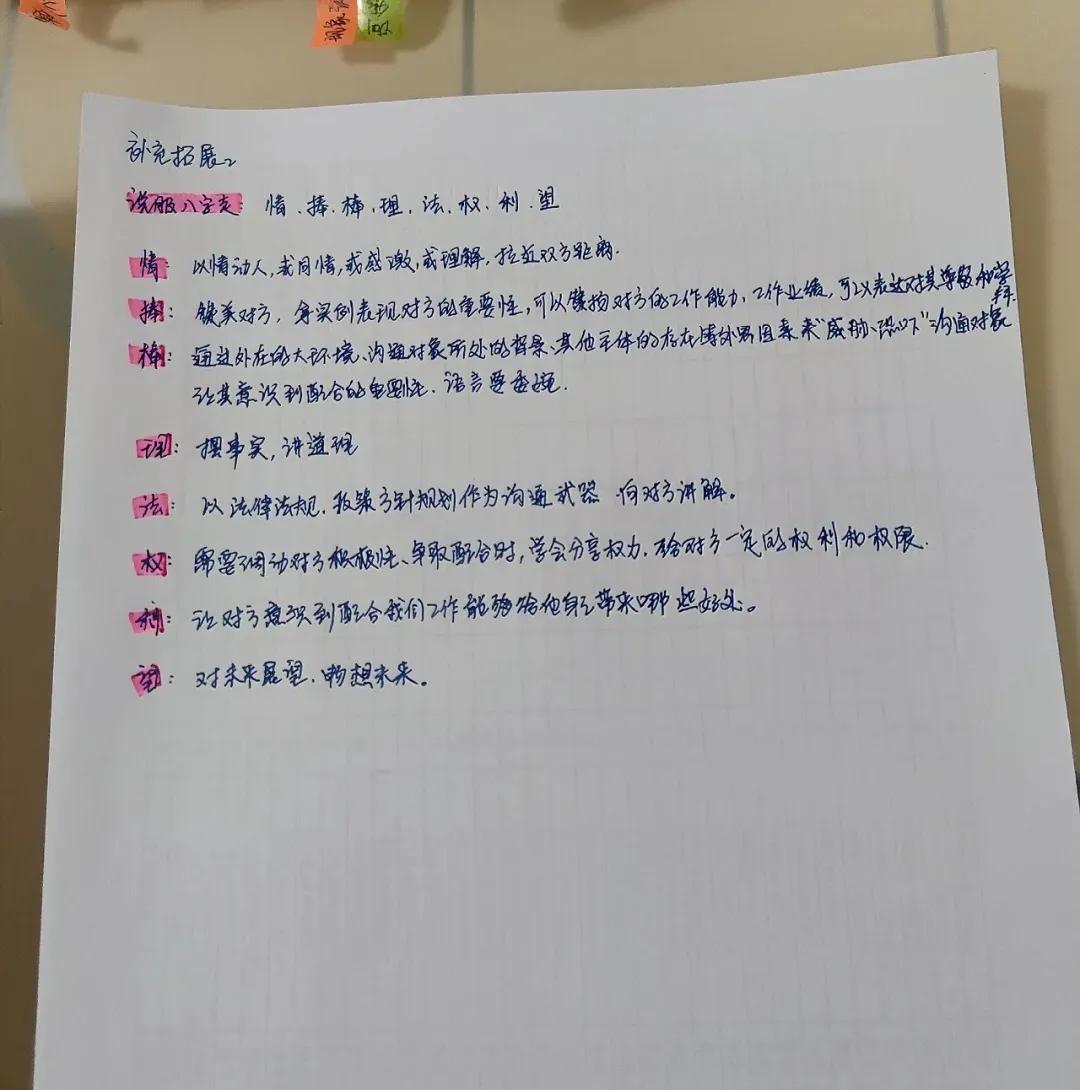 补充拓展2
说服八字先：情、捧、棒、理、法、权、利、望
情：以情动人，或同情，或感激，或理解，拉近双方距离.
捧：赞美对方，拿实例表现对方的重要性，可以赞扬对方的工作能力，工作业绩，可以表达对其尊敬和崇拜.
棒：通过外在的大环境、沟通对象所处的背景、其他主体的存在情外界因素来"威胁、恐吓"沟通对象
让其意识到配合的重要性.语言要委婉.
理：摆事实，讲道理
法：以法律法规，政策方针规划作为沟通武器 向对方讲解。
权：需要调动对方积极性、争取配合时，学会分享权力，给对方一定的权利和权限.
利：让对方意识到配合我们工作能够给他自己带来哪些好处。
望：对未来展望，畅想未来。